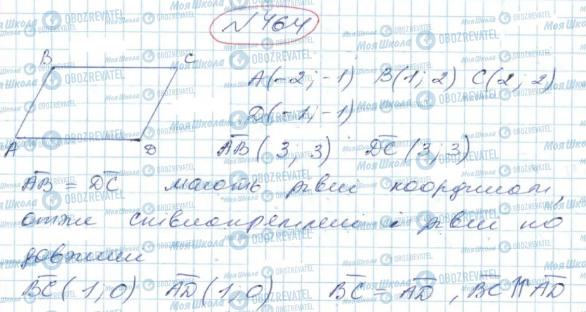 №464
B C
A(-2; -1) B(1; 2) C(2; 2)
D(-1; -1)
A D
AB(3; 3) DC(3; 3)
AB = DC мають рівні координати,
отже співнапрямлені і рівні по
довжині
BC(1; 0) AD(1; 0) BC = AD, BC ⇈ AD
Моя Школа
OBOZREVATEL